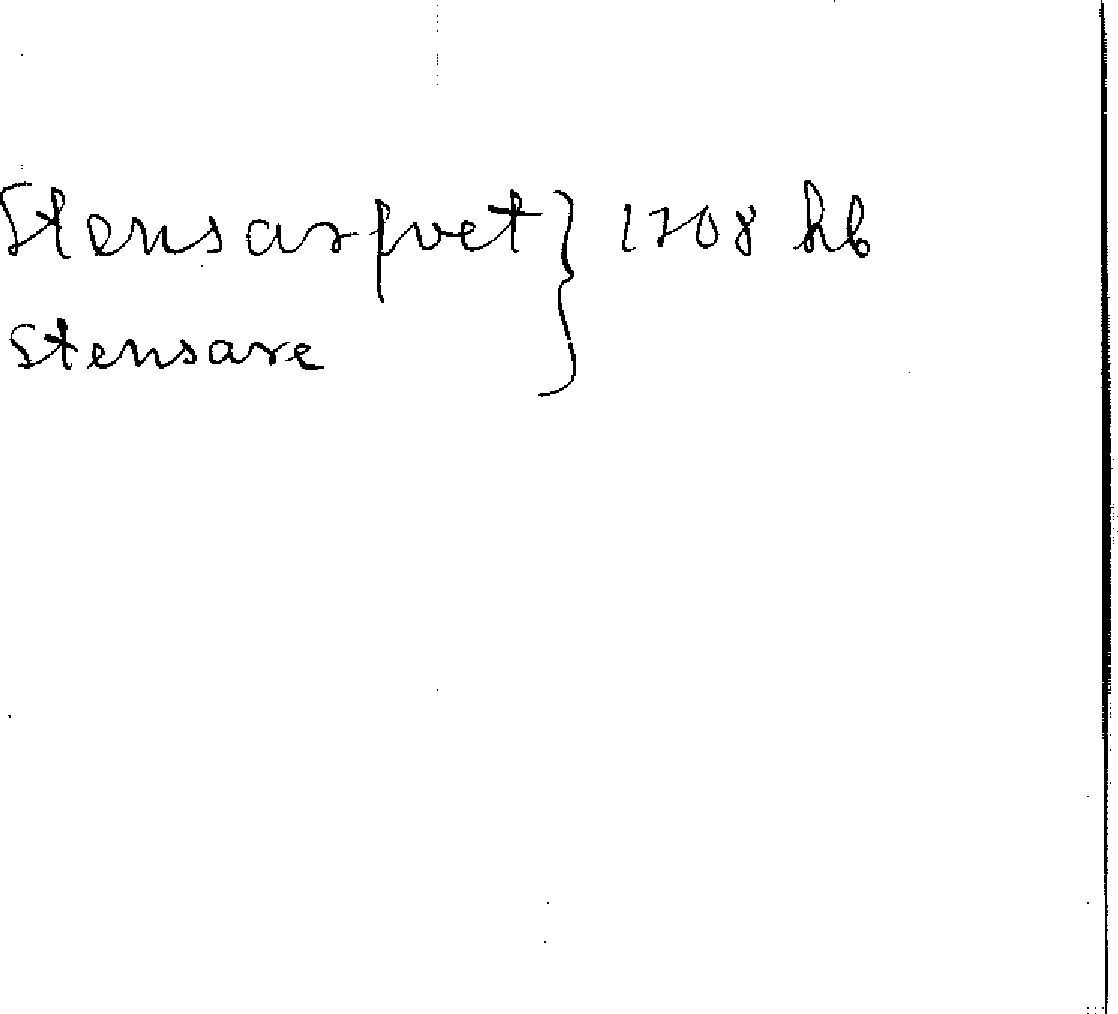 Stensarfvet } 1708 hb
Stensare